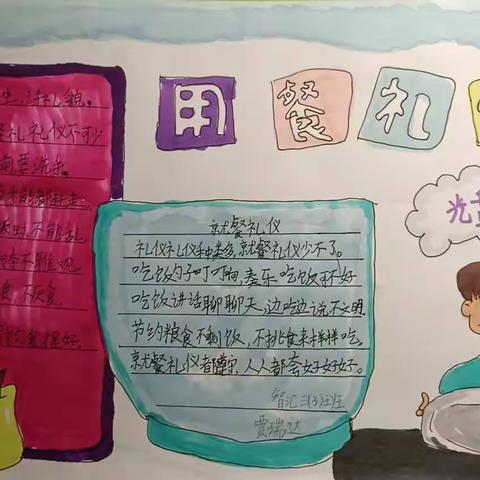 用餐礼
生,讲礼貌。
餐礼礼仪不可少
前要洗手。
时,不能乱
不雅观
食,不厌食。
就餐礼仪
礼仪礼仪种类多,就餐礼仪少不了。
吃饭勺子叮叮响,奏乐吃饭可不好
吃饭讲话聊聊天,边吃边说不文明
节约粮食不剩饭,不挑食来样样吃
就餐礼仪都遵守,人人都会好好好。
智汇三(3)班
贾瑞达
光